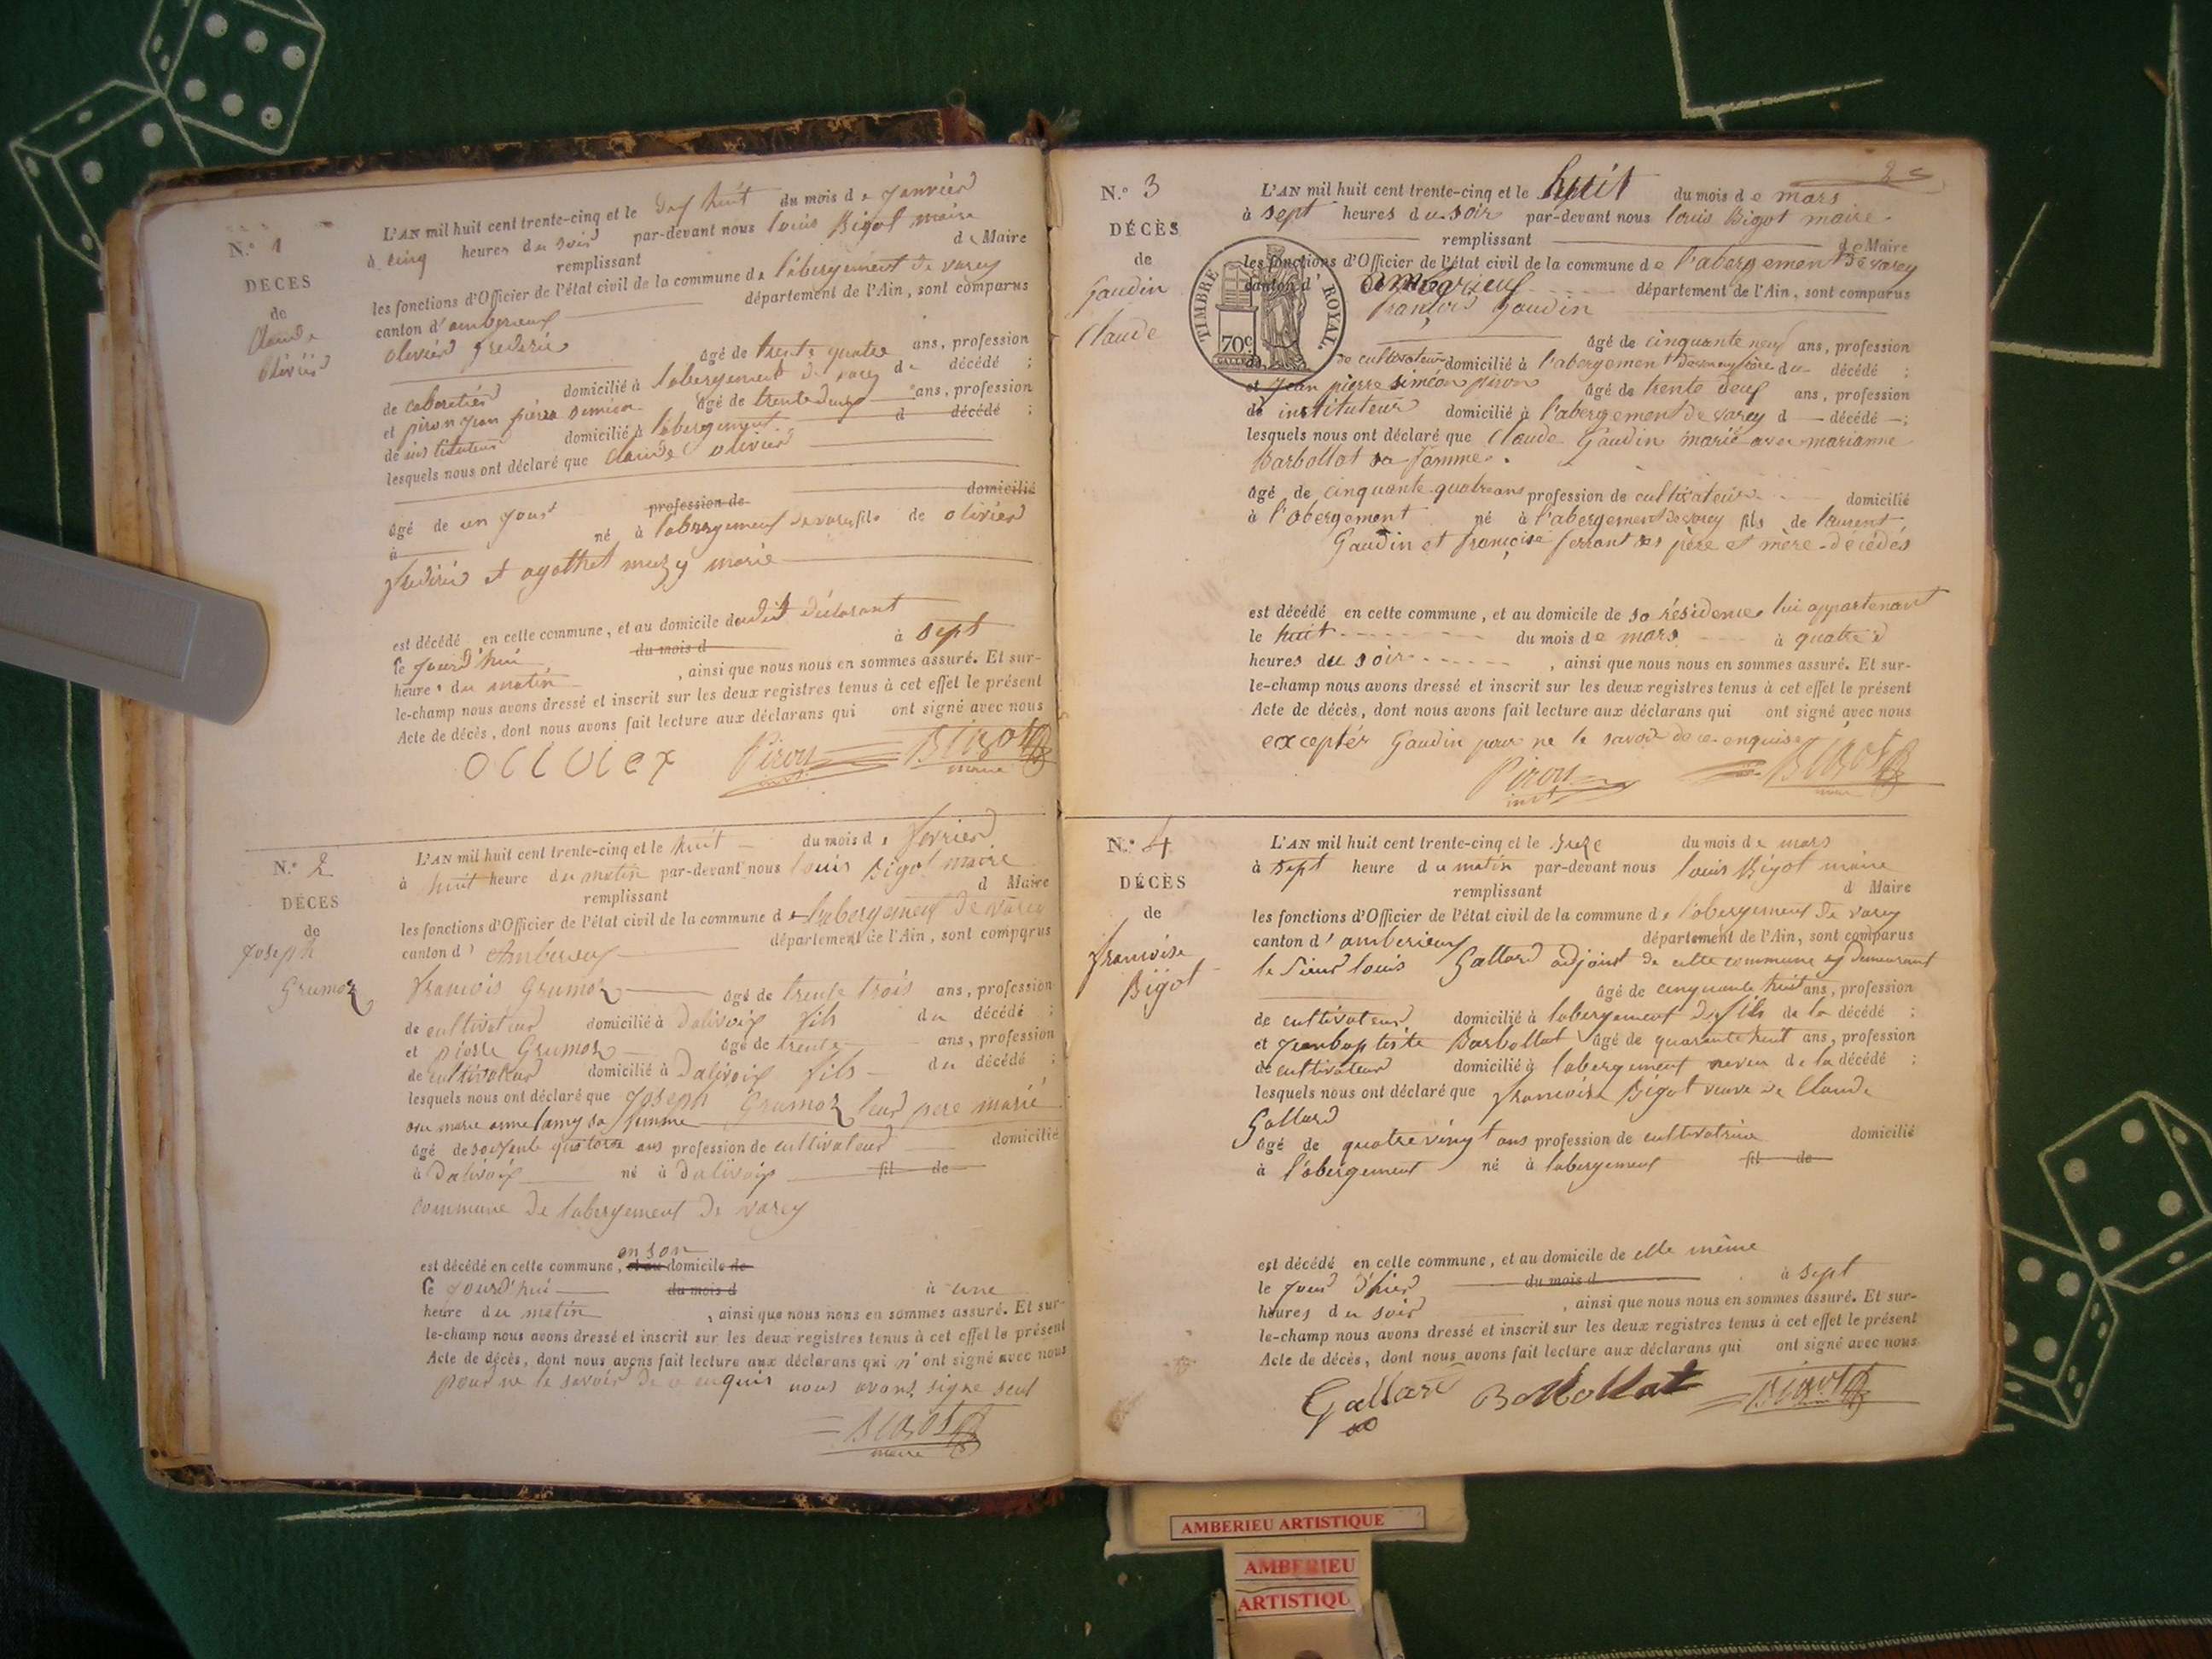 N.° 1
DÉCÈS
de
Claude
Olivier
L'AN mil huit cent trente-cinq et le dix huit du mois de janvier
à cinq heures du soir par-devant nous louis Bigot maire
remplissant de Maire
les fonctions d'Officier de l'état civil de la commune de l'abergement de varey
canton d'amberieux département de l'Ain, sont comparus
olivier frederic
âgé de trente quatre ans, profession
de cabaretier domicilié à l'abergement de varey de décédé ;
et piron jean pierre simeon âgé de trente deux ans, profession
de instituteur domicilié à l'abergement d décédé ;
lesquels nous ont déclaré que claude olivier
âgé de un jour profession de domicilié
à né à labergement de varey fils de olivier
frederic et agathe muzy marie
est décédé en cette commune, et au domicile dudit déclarant
le jourd'hui du mois d à sept
heures du matin, ainsi que nous nous en sommes assuré. Et sur-
le-champ nous avons dressé et inscrit sur les deux registres tenus à cet effet le présent
Acte de décès, dont nous avons fait lecture aux déclarans qui ont signé avec nous
Piron Bigot
inst maire
N.° 2
DÉCÈS
de
Joseph
Grumoz
L'AN mil huit cent trente-cinq et le huit du mois de fevrier
à huit heure du matin par-devant nous louis Bigot maire
remplissant d Maire
les fonctions d'Officier de l'état civil de la commune de labergement de varey
canton d'Amberieux département de l'Ain, sont comparus
francois Grumoz âgé de trente trois ans, profession
de cultivateur domicilié à Dalivoix fils du décédé ;
et pierre Grumoz âgé de trente ans, profession
de cultivateur domicilié à Dalivoix fils du décédé ;
lesquels nous ont déclaré que Joseph Grumoz leur pere marié
marie anne lamy sa femme
âgé de soixante quatorze ans profession de cultivateur domicilié
à Dalivoix né à Dalivoix fil de
commune de labergement de varey
en son
est décédé en cette commune, et au domicile de
le jourd'hui du mois d à une
heure du matin, ainsi que nous nous en sommes assuré. Et sur-
le-champ nous avons dressé et inscrit sur les deux registres tenus à cet effet le présent
Acte de décès, dont nous avons fait lecture aux déclarans qui n'ont signé avec nous
pour ne le savoir de ce enquis nous avons signé seul
Bigot
maire
2
N.° 3
DÉCÈS
de
Gaudin
Claude
L'AN mil huit cent trente-cinq et le huit du mois de mars
à sept heures du soir par-devant nous louis Bigot maire
remplissant de Maire
les fonctions d'Officier de l'état civil de la commune de l'abergement de varey
canton d' amberieux département de l'Ain, sont comparus
françois Gaudin
TIMBRE ROYAL.
70c
âgé de cinquante neuf ans, profession
de cultivateur domicilié à l'abergement de varey frère du décédé ;
et jean pierre siméon piron âgé de trente deux ans, profession
de instituteur domicilié à l'abergement de varey d décédé ;
lesquels nous ont déclaré que Claude Gaudin marié avec marianne
Barbollat sa femme.
âgé de cinquante-quatre ans profession de cultivateur domicilié
à l'abergement né à l'abergement de varey fils de laurent
Gaudin et françoise ferrant ses père et mère décédés
est décédé en cette commune, et au domicile de sa résidence lui appartenant
le huit du mois de mars à quatre
heures du soir, ainsi que nous nous en sommes assuré. Et sur-
le-champ nous avons dressé et inscrit sur les deux registres tenus à cet effet le présent
Acte de décès, dont nous avons fait lecture aux déclarans qui ont signé avec nous
excepter Gaudin pour ne le savoir de ce enquise
Piron Bigot
inst maire
N.° 4
DÉCÈS
de
francoise
Bigot
L'AN mil huit cent trente-cinq et le du mois de mars
à sept heure du matin par-devant nous louis Bigot maire
remplissant d Maire
les fonctions d'Officier de l'état civil de la commune de l'abergement de varey
canton d'amberieux département de l'Ain, sont comparus
le sieur louis Gallard adjoint de cette commune y demeurant
âgé de cinquante huit ans, profession
de cultivateur domicilié à labergement fils de la décédé ;
et jean baptiste Barbollat âgé de quarante huit ans, profession
de cultivateur domicilié à labergement neveu de la décédé ;
lesquels nous ont déclaré que francoise Bigot veuve de Claude
Gallard
âgé de quatre vingt ans profession de cultivatrice domicilié
à l'abergement né à labergement fil de
est décédé en cette commune, et au domicile de elle même
le jour d'hier du mois d à sept
heures du soir, ainsi que nous nous en sommes assuré. Et sur-
le-champ nous avons dressé et inscrit sur les deux registres tenus à cet effet le présent
Acte de décès, dont nous avons fait lecture aux déclarans qui ont signé avec nous
Gallard Barbollat Bigot
AMBERIEU ARTISTIQUE
AMBERIEU
ARTISTIQU